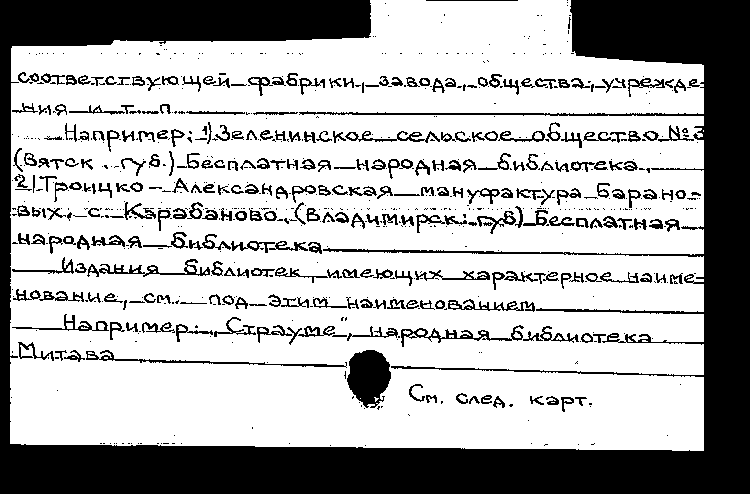 соответствующей фабрики, завода, общества, учрежде-
ния и т. п.
Например: 1) Зеленинское сельское общество № 3
(Вятск. губ.) Бесплатная народная библиотека.
2) Троицко-Александровская мануфактура Барано-
вых, с. Карабаново. (Владимирск. губ) Бесплатная
народная библиотека
Издания библиотек, имеющих характерное наиме-
нование, см. под этим наименованием
Например: „Страуме", народная библиотека.
Митава
См. след. карт.